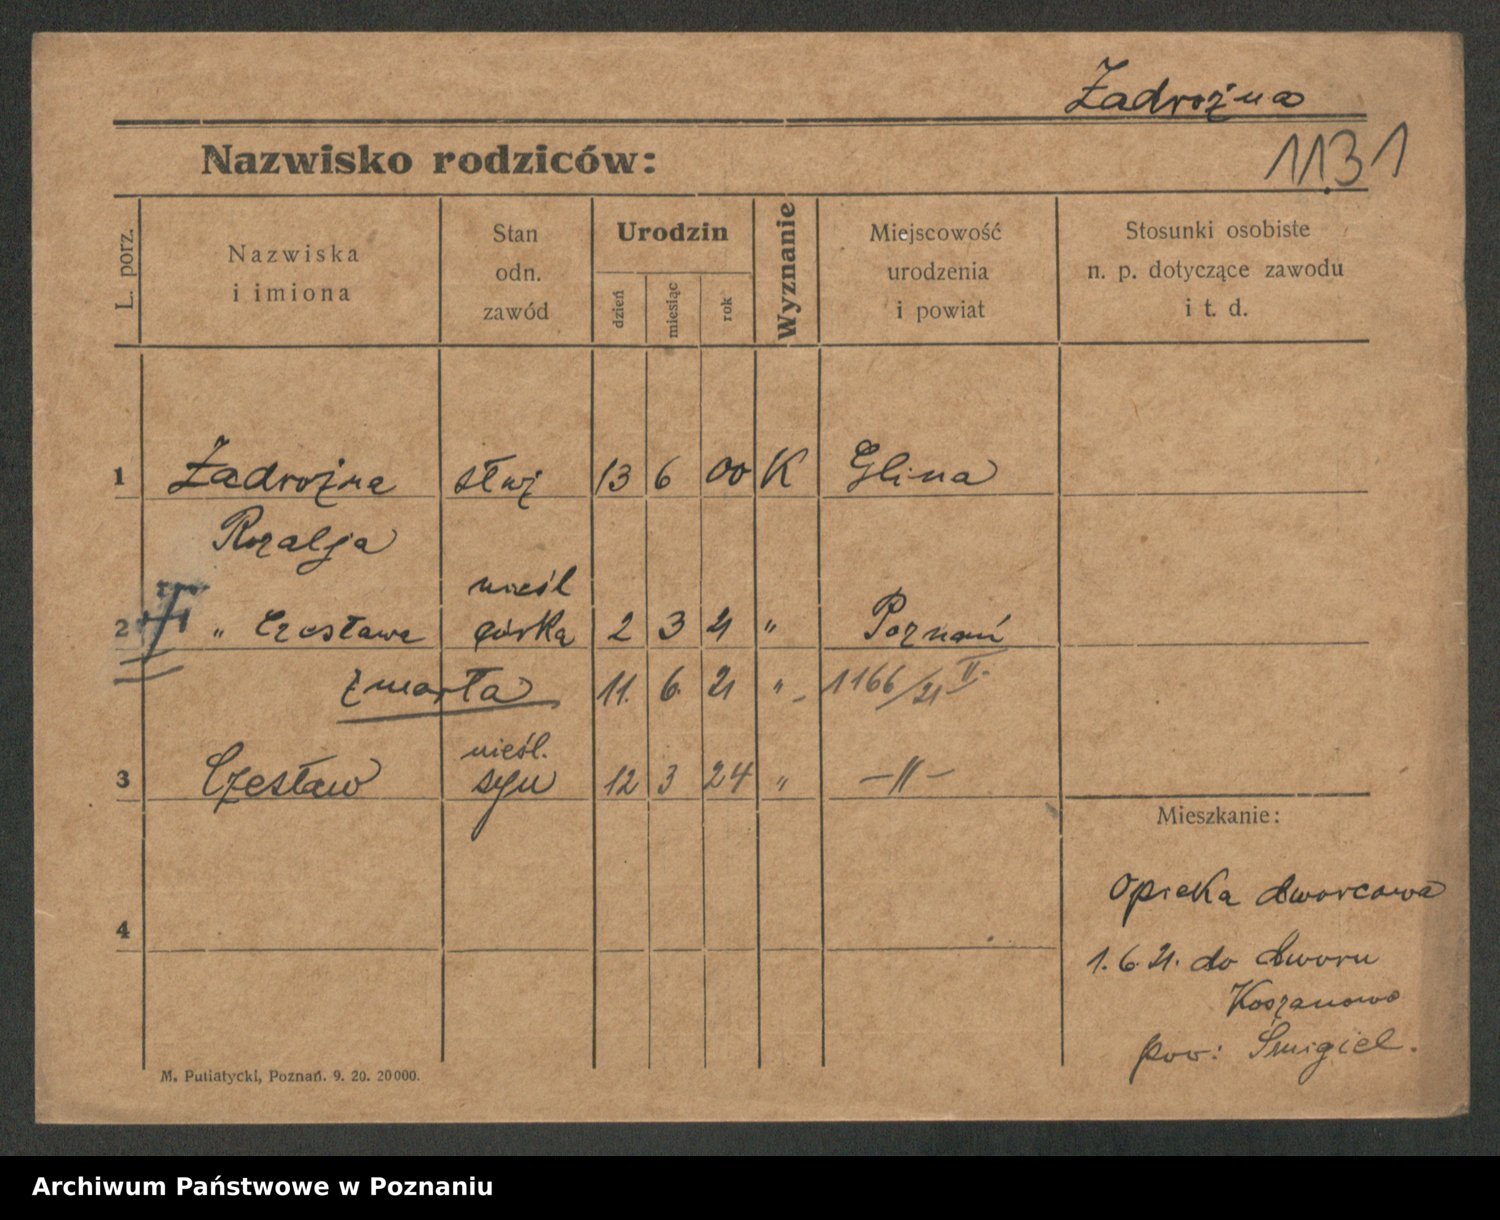 Zadrożna
1131
Nazwisko rodziców:
L. porz.
Nazwiska
i imiona
Stan
odn.
zawód
Urodzin
dzień
miesiąc
rok
Wyznanie
Miejscowość
urodzenia
i powiat
Stosunki osobiste
n. p. dotyczące zawodu
i t. d.
1 Zadrożna służ 13 6 00 K Glina
Rozalja
nieśl
2 " Czesława córka 2 3 21 " Poznań
zmarła 11. 6. 21 " 1166/21 II.
nieśl.
3 Czesław syn 12 3 24 " —"—
Mieszkanie:
4
Opieka dworcowa
1.6.21. do dworu
Koszanowo
pow: Śmigiel.
M. Putiatycki, Poznań. 9. 20. 20000.
Archiwum Państwowe w Poznaniu